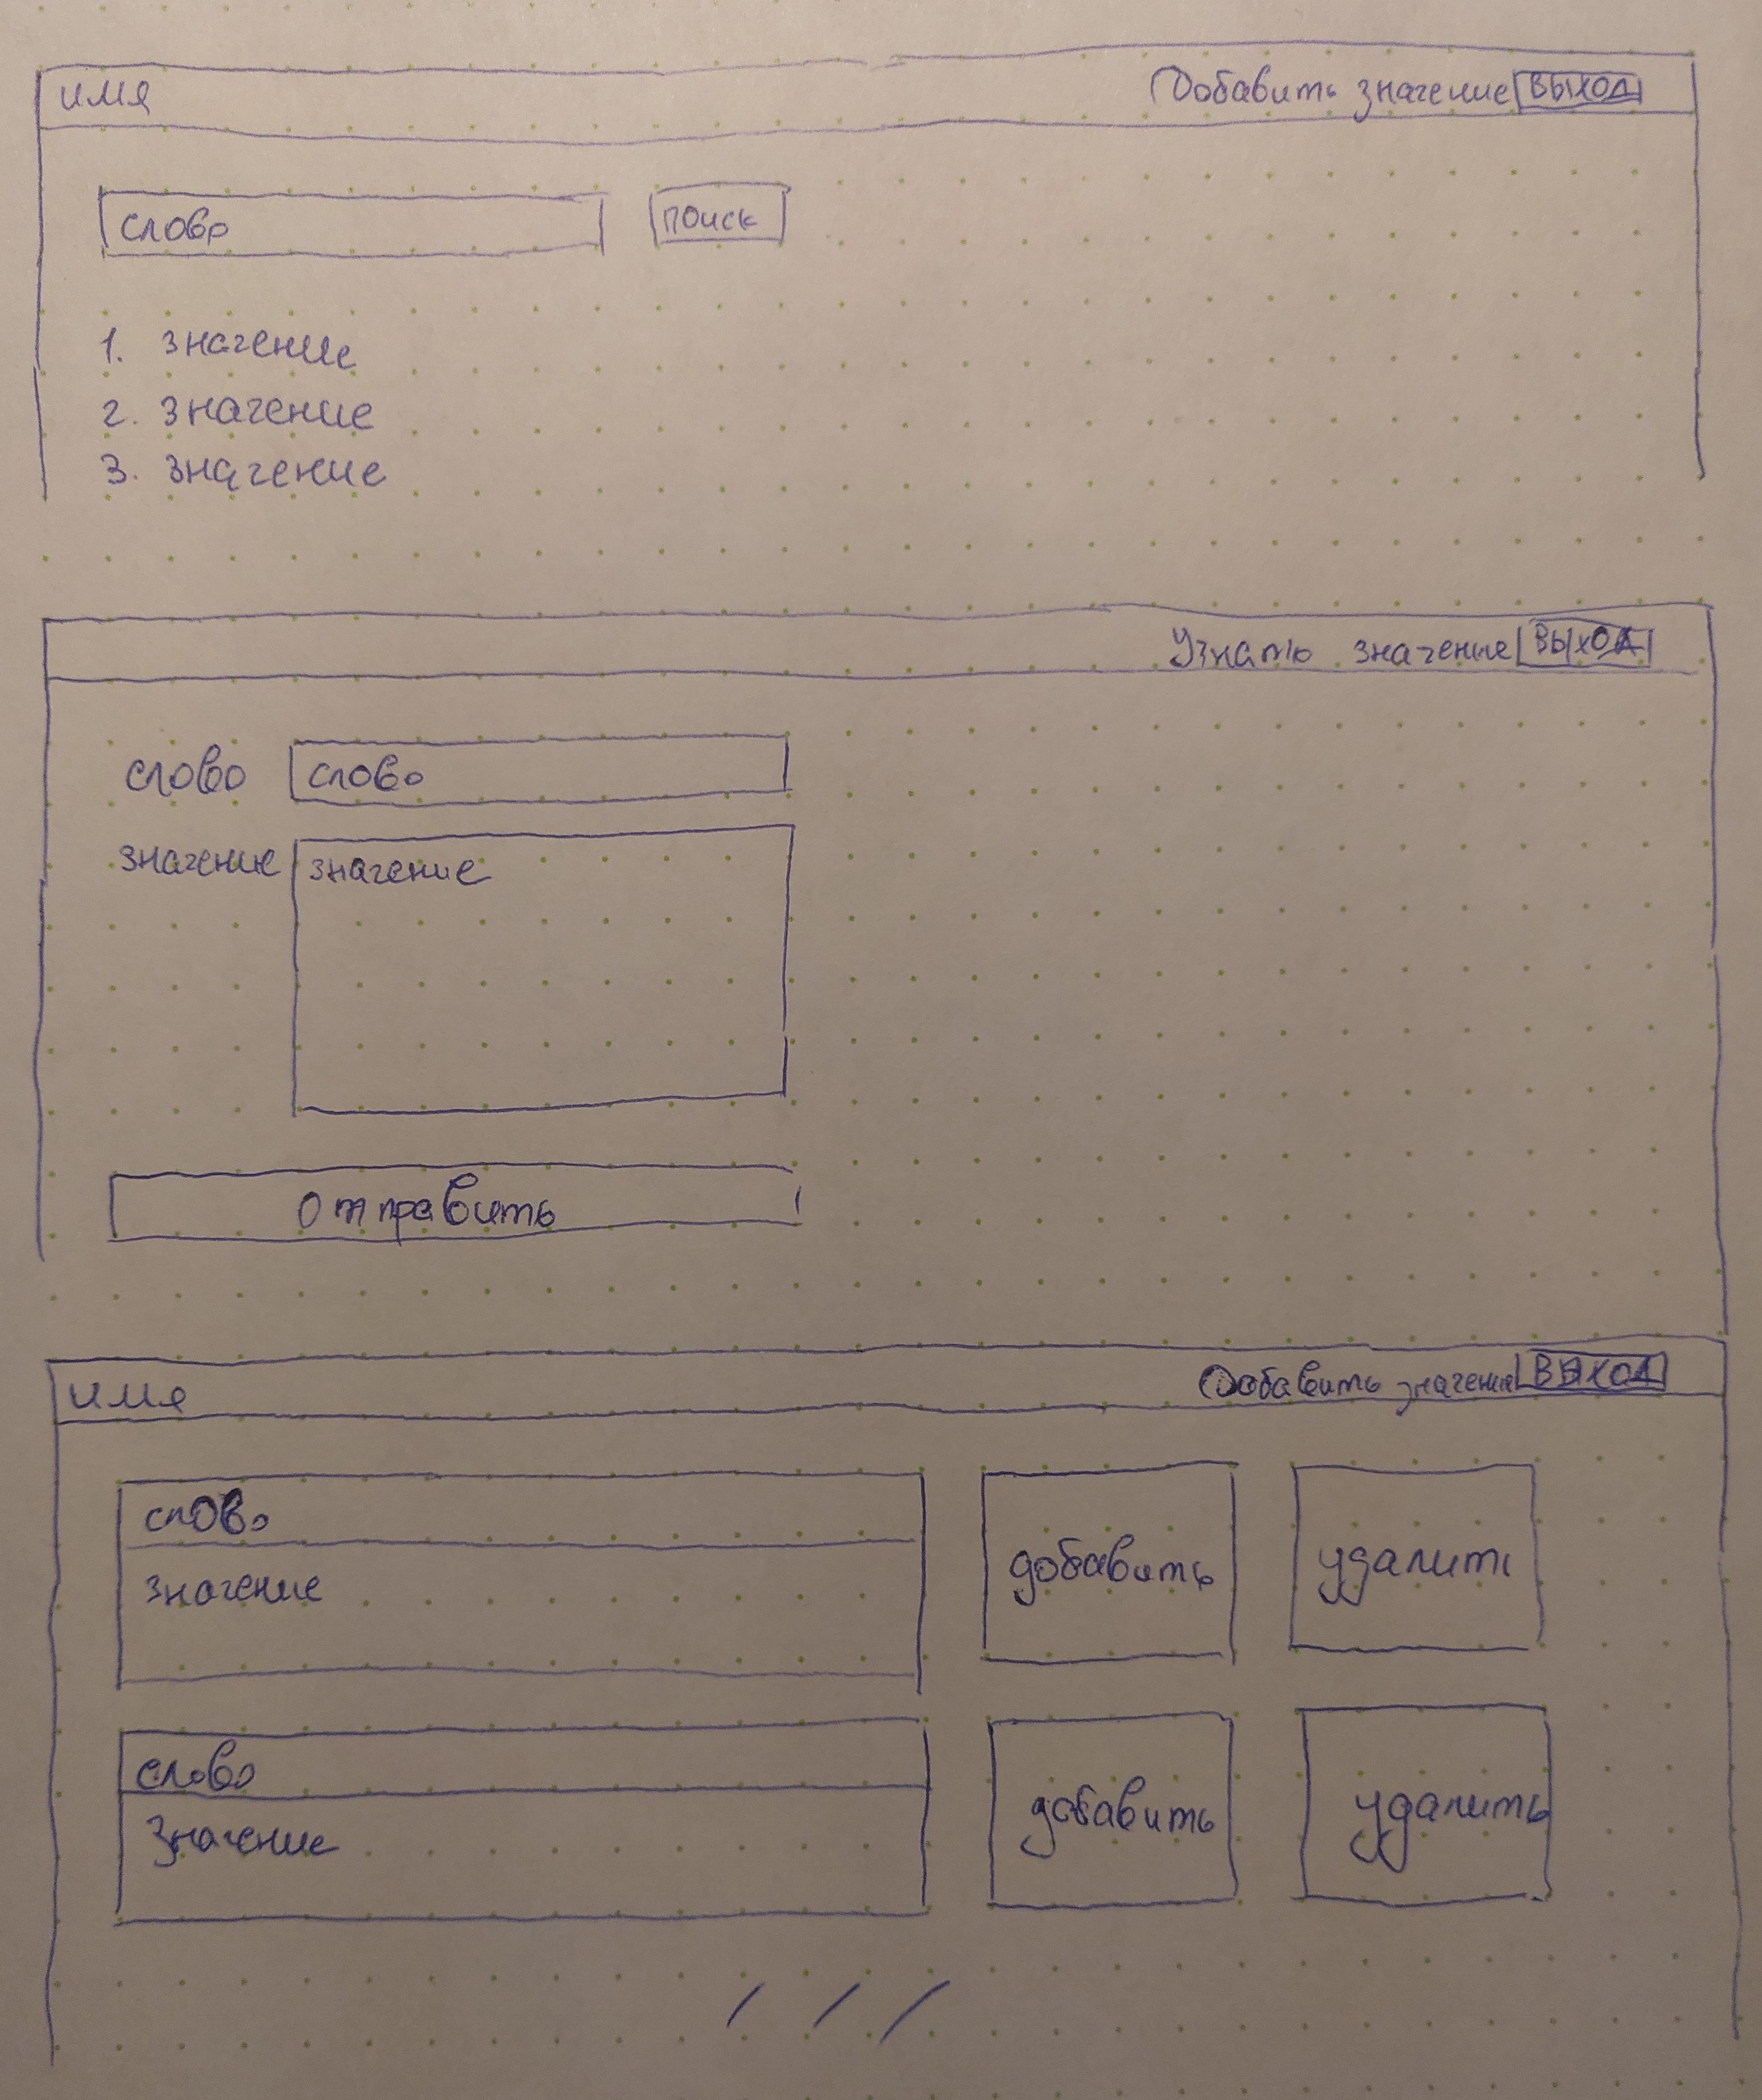 имя Добавить значение ВЫХОД
слово поиск
1. значение
2. значение
3. значение
Узнать значение ВЫХОД
слово слово
значение значение
отправить
имя Добавить значение ВЫХОД
слово
значение добавить удалить
слово
Значение добавить удалить